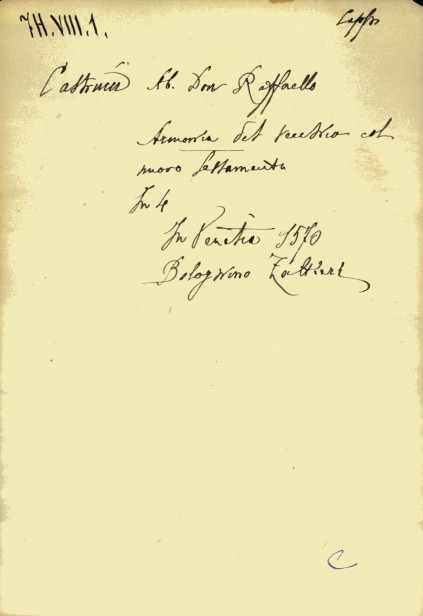 7H.VIII.1.
Castrucci Ab. Don Raffaello
Armonia del vecchio col
nuovo testamento
In 4
In Venetia 1570
Bolognino Zaltieri
C